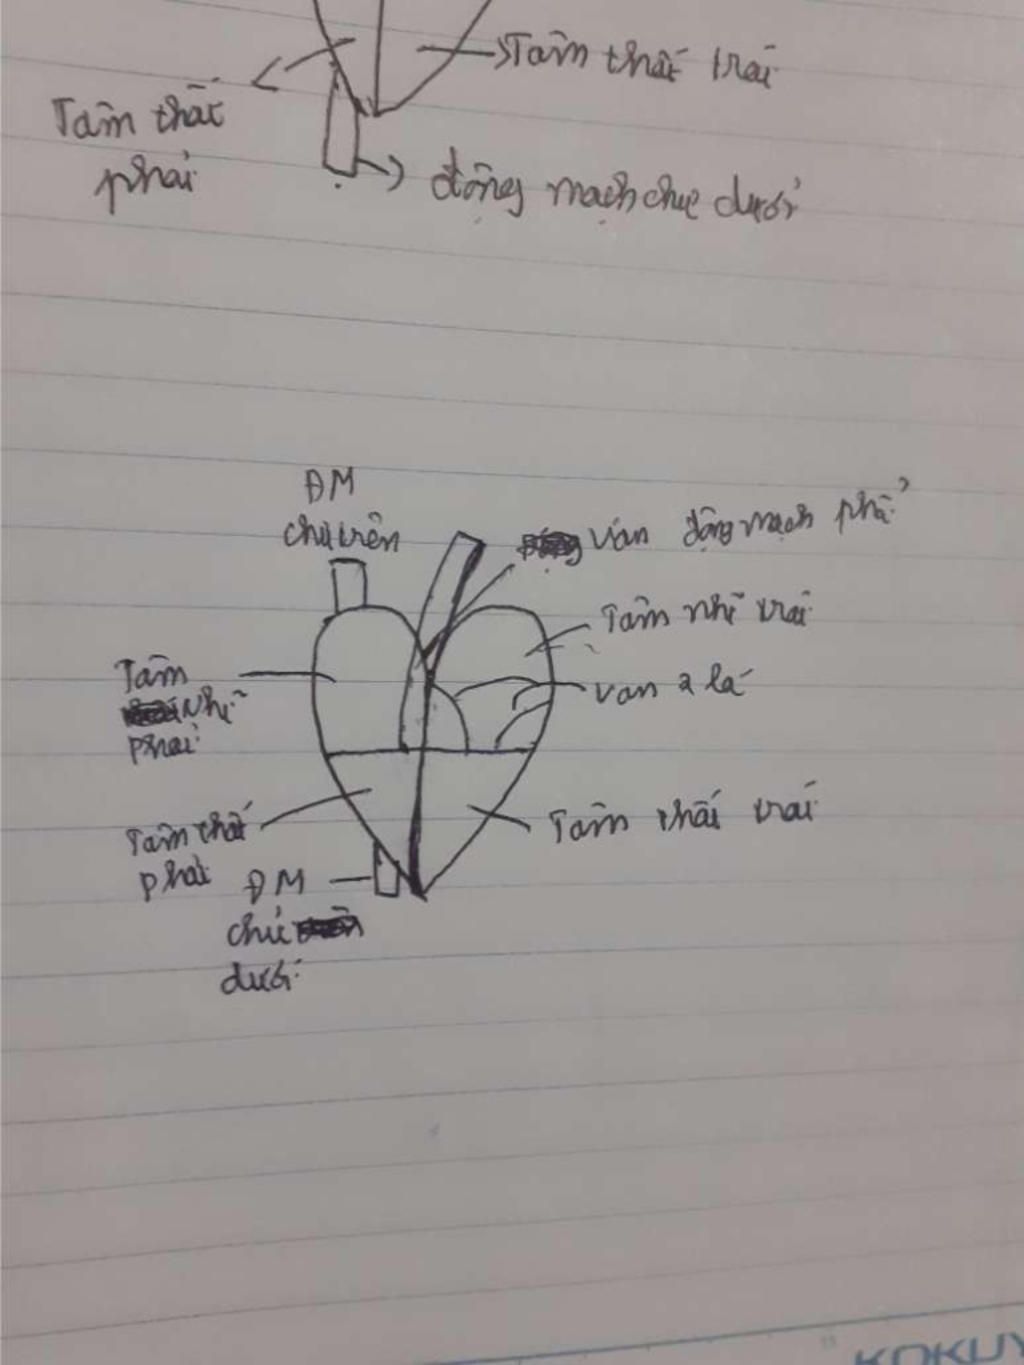 Tâm thất trái
Tâm thất
phải
động mạch chủ dưới
ĐM
chủ trên
Van động mạch phổi
Tâm nhĩ trái
Tâm
Nhĩ
phải
van 2 lá
Tâm thất
phải
Tâm thất trái
ĐM
chủ
dưới
KOKUY